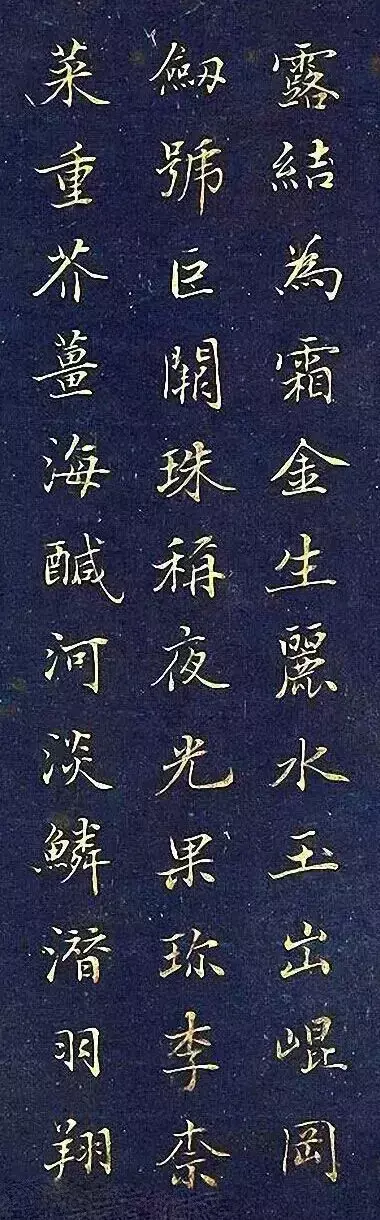 露結為霜金生麗水玉出崐岡
劒號巨闕珠稱夜光果珎李柰
菜重芥薑海鹹河淡鱗潛羽翔